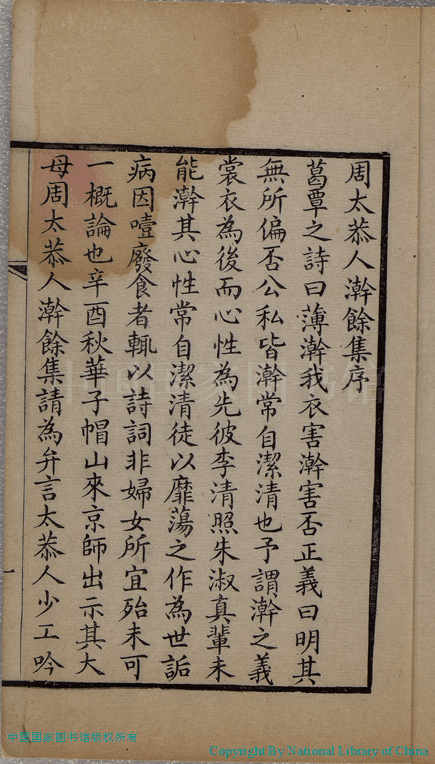 周太恭人澣餘集序
葛覃之詩曰薄澣我衣害澣害否正義曰明其
無所偏否公私皆澣常自潔清也予謂澣之義
裳衣為後而心性為先彼李清照朱淑真輩未
能澣其心性常自潔清徒以靡蕩之作為世詬
病因噎廢食者輒以詩詞非婦女所宜殆未可
一概論也辛酉秋華子帽山來京師出示其大
母周太恭人澣餘集請為弁言太恭人少工吟
一
中國國家图书馆版权所有
Copyright By National Library of China